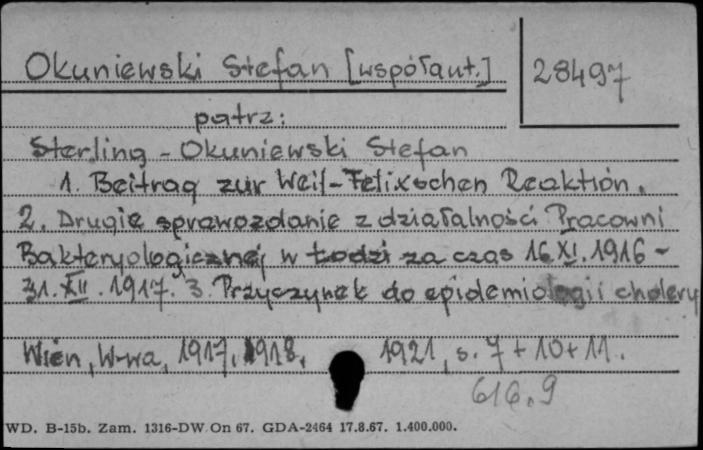 Okuniewski Stefan [współaut.]
28497
patrz:
Sterling - Okuniewski Stefan
1. Beitrag zur Weil-Felixschen Reaktion.
2. Drugie sprawozdanie z działalności Pracowni
Bakteryologicznej w Łodzi za czas 16.XI.1916 -
31.XII.1917. 3. Przyczynek do epidemiologii cholery
Wien, W-wa, 1917, 1918, 1921, s. 7 + 10 + 11.
616.9
WD. B-15b. Zam. 1316-DW On 67. GDA-2464 17.8.67. 1.400.000.